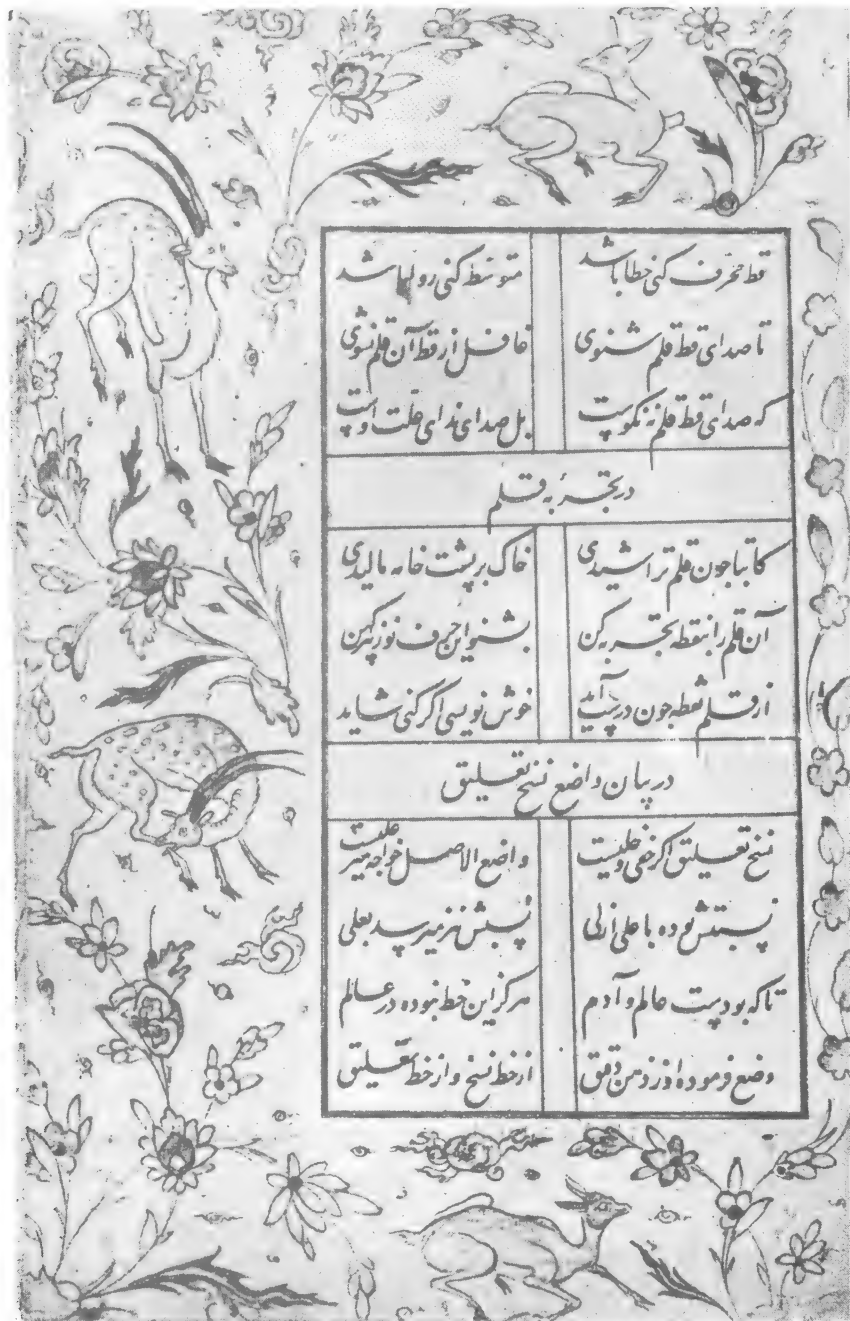 قط محرف کنی خطا باشد متوسط کنی روا باشد
تا صدای قط قلم شنوی غافل از قط آن قلم نشوی
که صدای قط قلم نه نکوست بل صدای ندای علت اوست
در تجربهٔ قلم
کاتبا جون قلم تراشیدی خاک بر پشت خامه مالیدی
آن قلم را بنقطه تجربه کن بشنو این حرف نوز پیر کهن
از قلم نقطه جون درست آید خوش نویسی اگر کنی شاید
در بیان واضع نسخ تعلیق
نسخ تعلیق اکر خفی و جلیست واضع الاصل خواجه میر علیست
نسبتش بوده با علی ازلی نسبش نیز میرسد بعلی
تا که بودست عالم و آدم هرکز این خط نبوده در عالم
وضع فرموده او ز ذهن دقیق از خط نسخ و از خط تعلیق